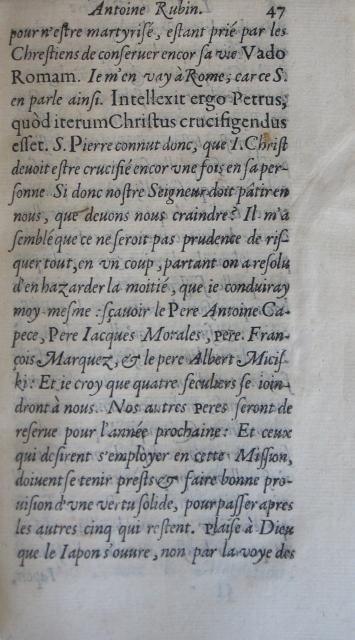 Antoine Rubin. 47
pour n'estre martyrisé, estant prié par les
Chrestiens de conseruer encor sa vie Vado
Romam. Ie m'en vay à Rome, car ce S.
en parle ainsi. Intellexit ergo Petrus,
quòd iterum Christus crucifigendus
esset. S. Pierre connut donc, que I. Christ
deuoit estre crucifié encor vne fois en sa per-
sonne Si donc nostre Seigneur doit patir en
nous, que deuons nous craindre? Il m'a
semblé que ce ne seroit pas prudence de ris-
quer tout, en vn coup, partant on a resolu
d'en hazarder la moitié, que ie conduiray
moy mesme : sçauoir le Pere Antoine Ca-
pece, Pere Iacques Morales, Pere. Fran-
çois Marquez, & le pere Albert Micis-
ki : Et ie croy que quatre seculiers se ioin-
dront à nous. Nos autres Peres seront de
reserue pour l'année prochaine : Et ceux
qui desirent s'employer en cette Mission,
doiuent se tenir prests & faire bonne pro-
uision d'vne vertu solide, pour passer apres
les autres cinq qui restent. Plaise à Dieu
que le Iapon s'ouure, non par la voye des